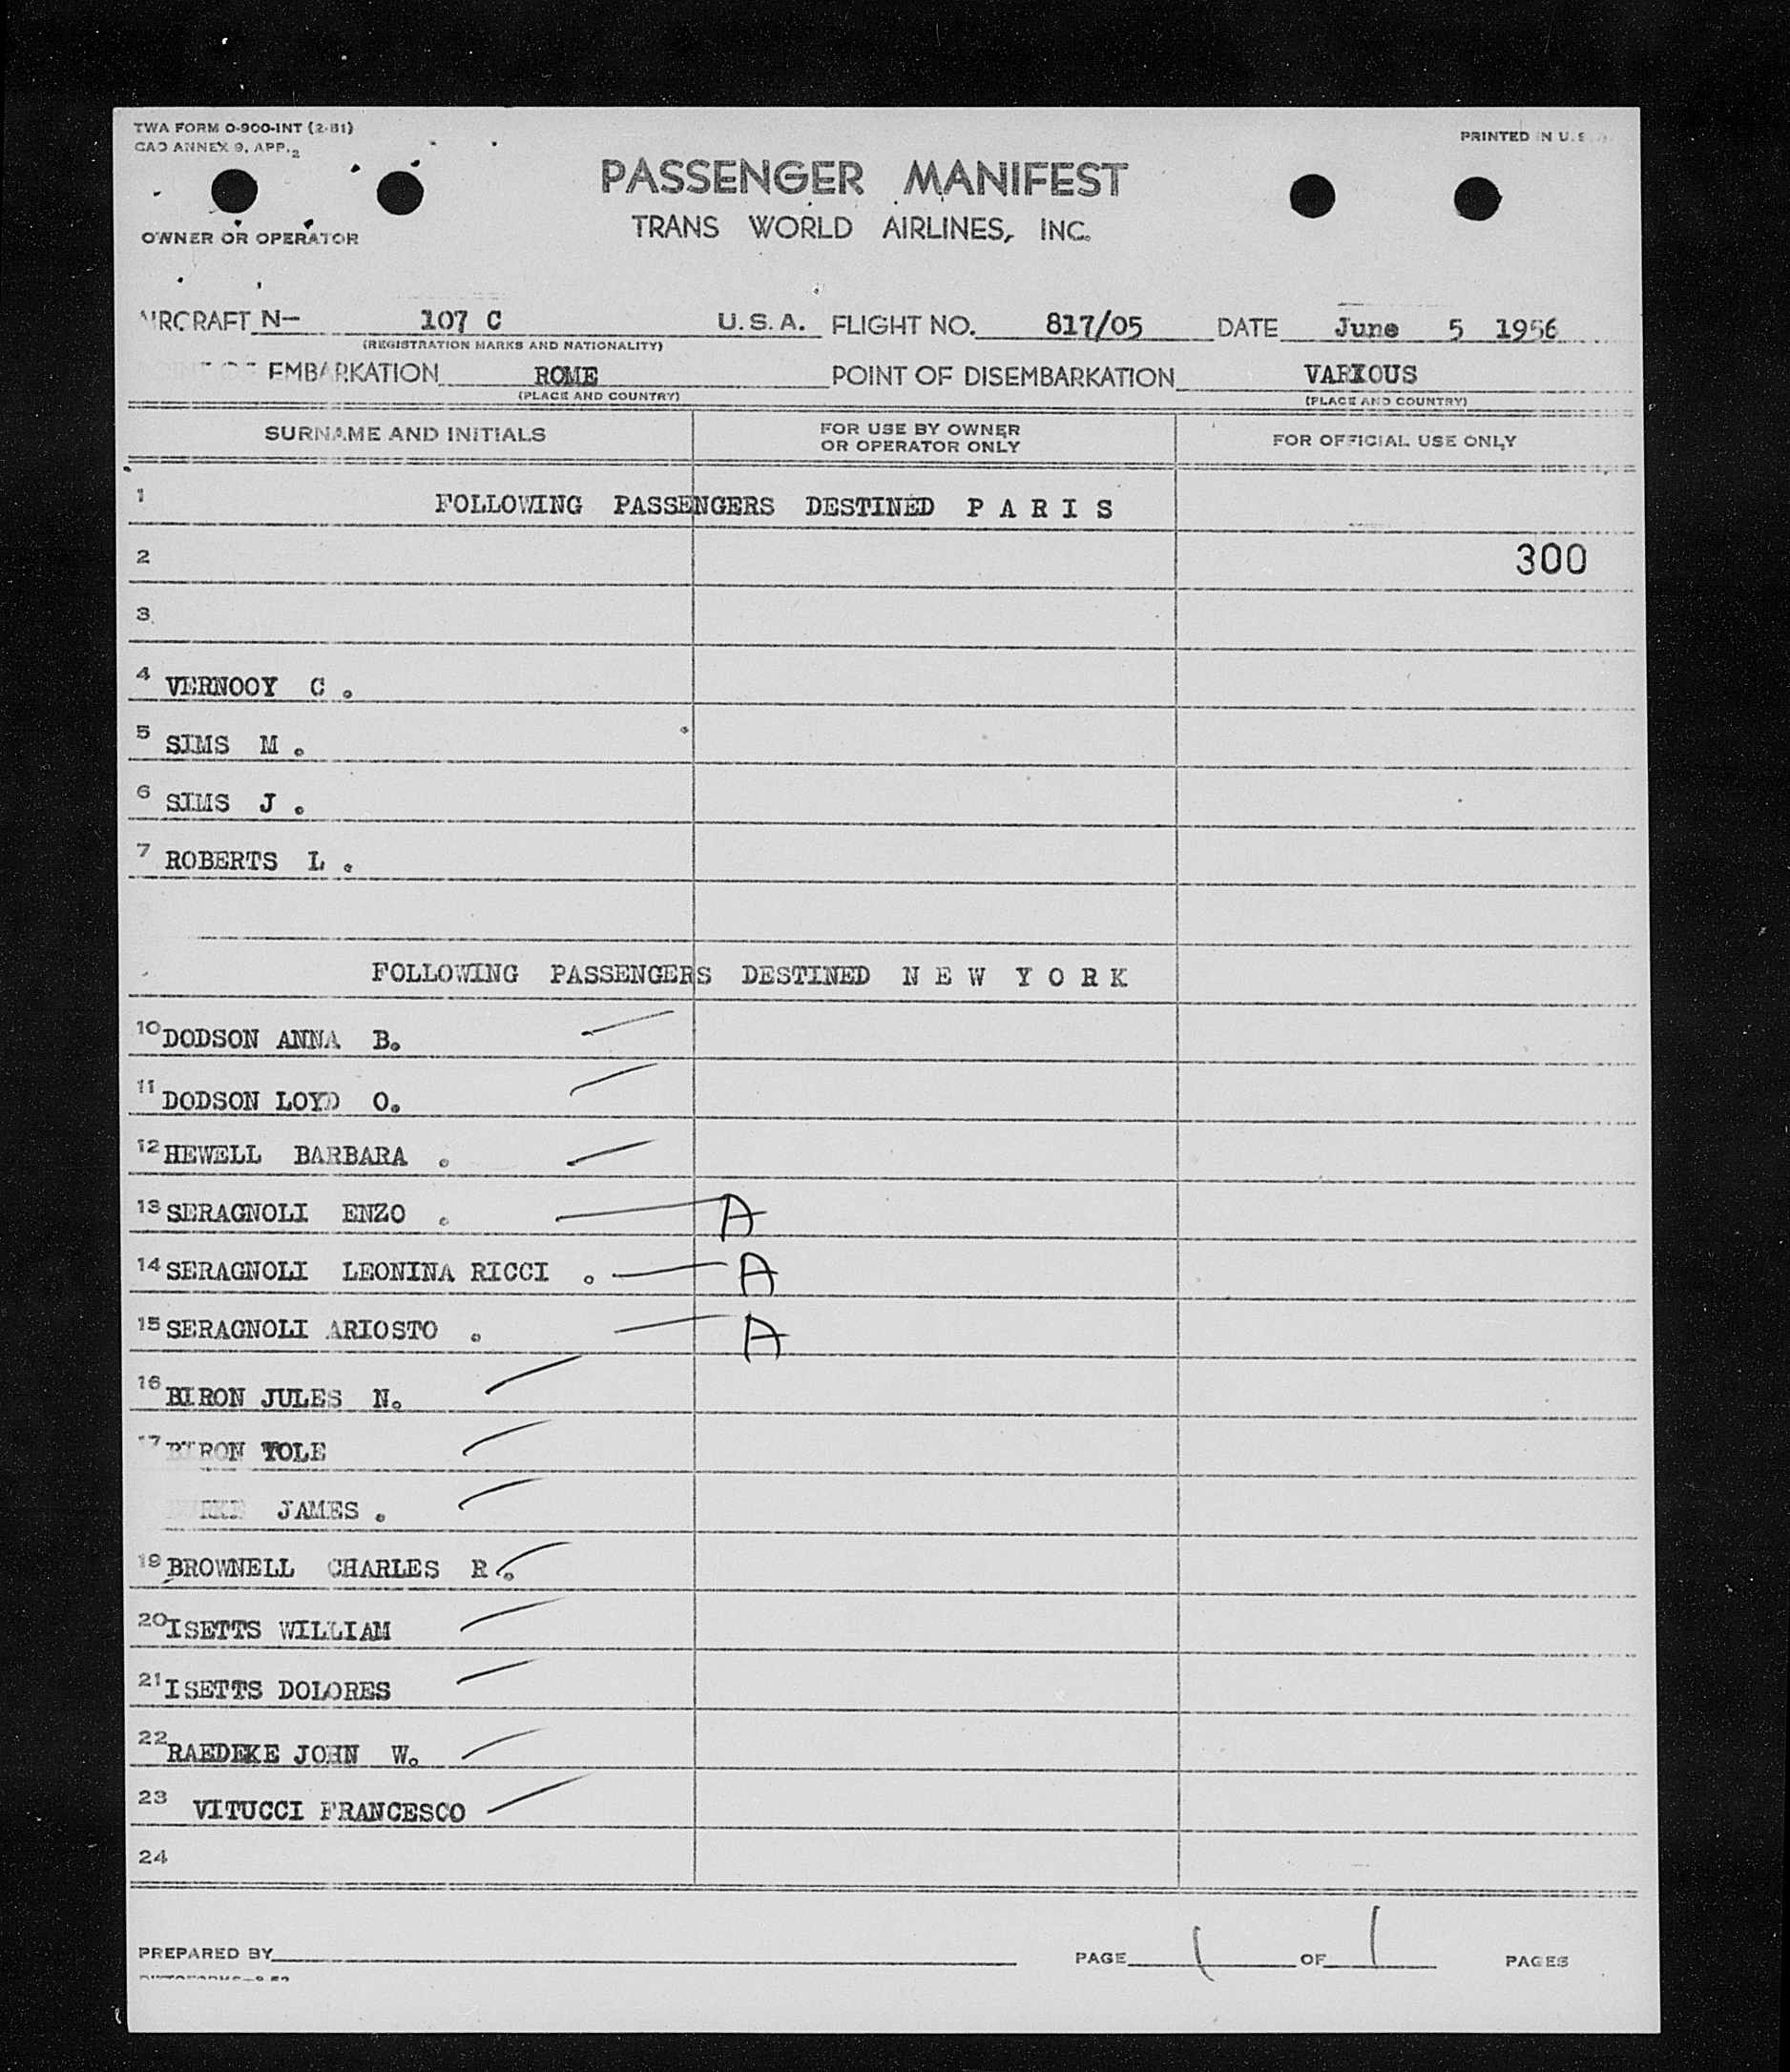 TWA FORM O-900-INT (2-51)
CAO ANNEX 9, APP. 2
PRINTED IN U.S.
PASSENGER MANIFEST
TRANS WORLD AIRLINES, INC.
OWNER OR OPERATOR
AIRCRAFT N- 107 C U.S.A. FLIGHT NO. 817/05 DATE June 5 1956
(REGISTRATION MARKS AND NATIONALITY)
EMBARKATION ROME POINT OF DISEMBARKATION VARIOUS
(PLACE AND COUNTRY) (PLACE AND COUNTRY)
SURNAME AND INITIALS FOR USE BY OWNER OR OPERATOR ONLY FOR OFFICIAL USE ONLY
1 FOLLOWING PASSENGERS DESTINED P A R I S
2 300
3
4 VERNOOY C .
5 SIMS M .
6 SIMS J .
7 ROBERTS L .
FOLLOWING PASSENGERS DESTINED N E W Y O R K
10 DODSON ANNA B.
11 DODSON LOYD O.
12 HEWELL BARBARA .
13 SERAGNOLI ENZO . A
14 SERAGNOLI LEONINA RICCI . A
15 SERAGNOLI ARIOSTO . A
16 BIRON JULES N.
17 BIRON YOLE
JAMES .
19 BROWNELL CHARLES R .
20 ISETTS WILLIAM
21 ISETTS DOLORES
22 RAEDEKE JOHN W.
23 VITUCCI FRANCESCO
24
PREPARED BY PAGE 1 OF 1 PAGES